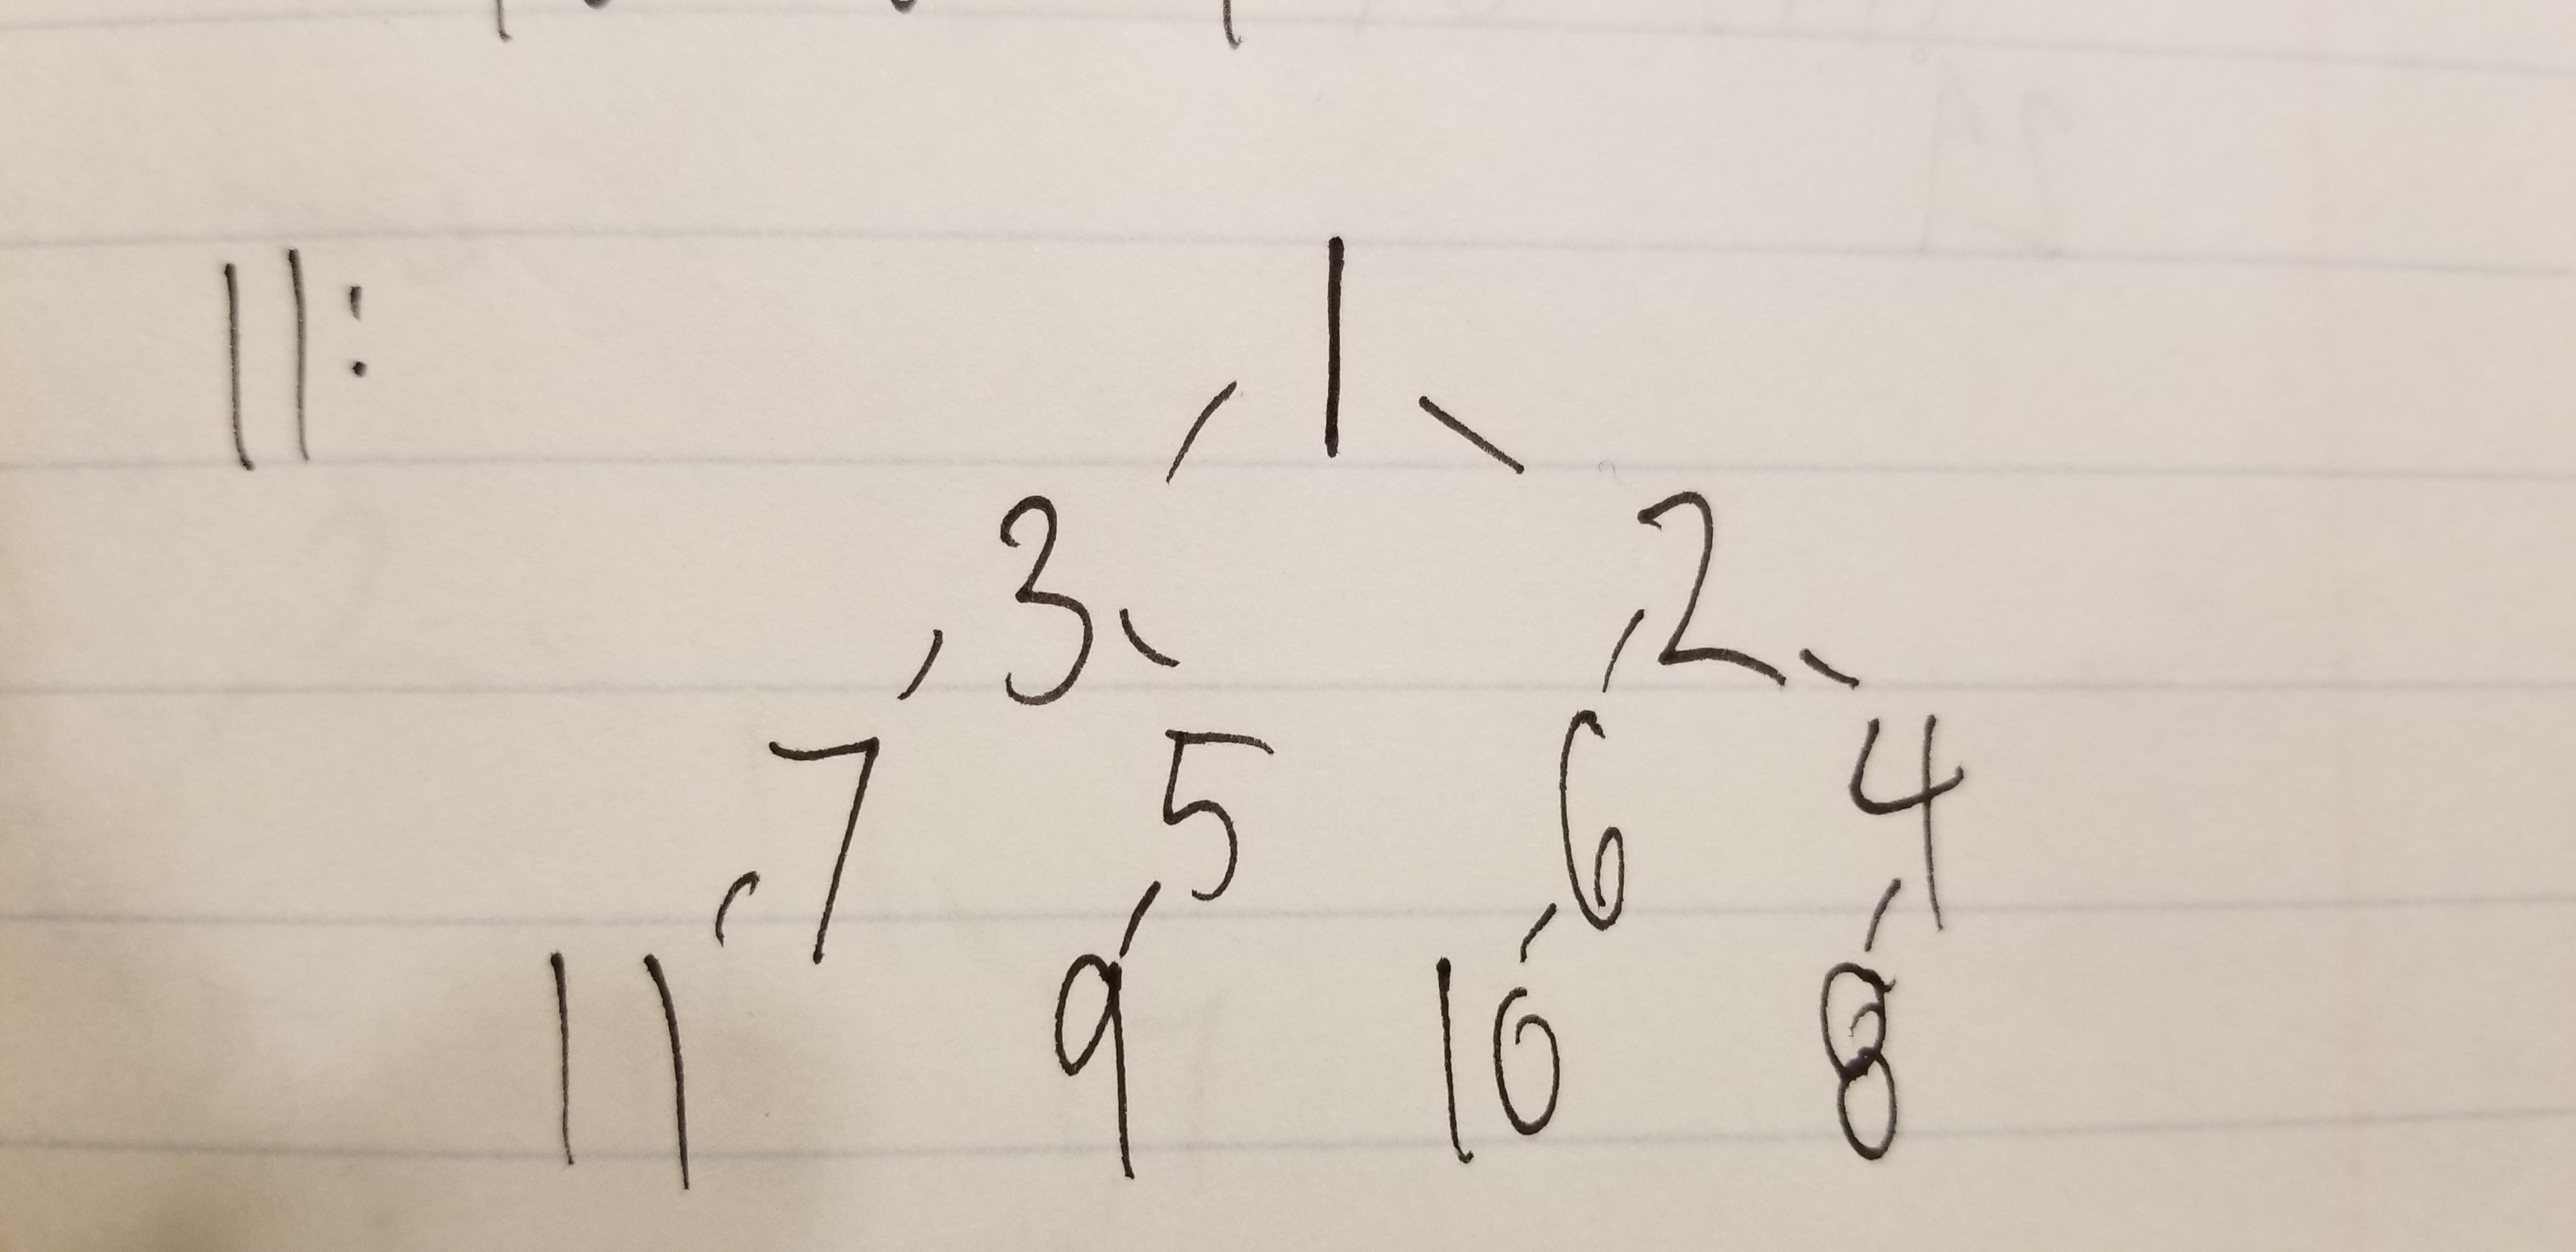 11: 1
3 2
7 5 6 4
11 9 10 8